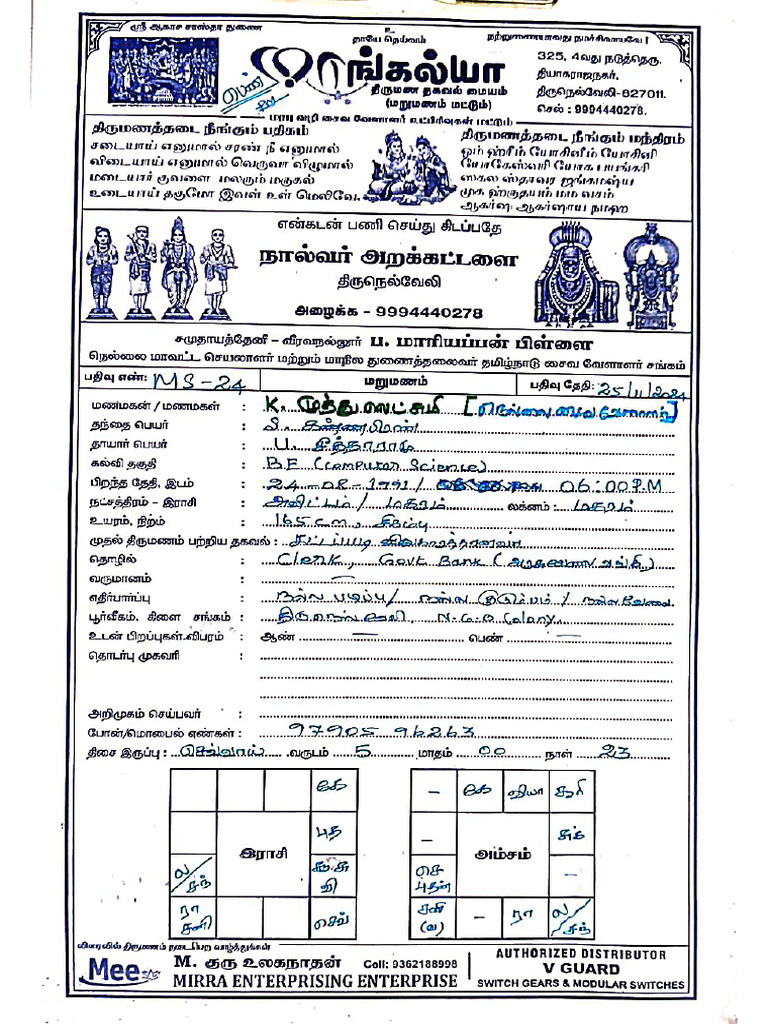 ஸ்ரீ ஆகாச சாஸ்தா துணை
உ
தாயே தெய்வம்
மாங்கல்யா
திருமண தகவல் மையம்
(மறுமணம் மட்டும்)
325, 4வது நடுத்தெரு,
தியாகராஜநகர்,
திருநெல்வேலி-627011.
செல் : 9994440278.
பெண்
மரபு வழி சைவ வேளாளர் உட்பிரிவுகள் மட்டும்
திருமணத்தடை நீங்கும் பதிகம்
சடையாய் எனுமால் சரண் நீ எனுமால்
விடையாய் எனுமால் வெருவா விழுமால்
மடையார் குவளை மலரும் மருகல்
உடையாய் தகுமோ இவள் உள் மெலிவே.
திருமணத்தடை நீங்கும் மந்திரம்
ஓம் ஹ்ரீம் யோகினீம் யோகினி
யோகேஸ்வரி யோக பயங்கரி
சகல ஸ்தாவர ஜங்கமஸ்ய
முக ஹ்ருதயம் மம வசம்
ஆகர்ஷ ஆகர்ஷாய நமஹ
என்கடன் பணி செய்து கிடப்பதே
நால்வர் அறக்கட்டளை
திருநெல்வேலி
அழைக்க - 9994440278
சமுதாயத்தேனீ - வீரவநல்லூர் ப. மாரியப்பன் பிள்ளை
நெல்லை மாவட்ட செயலாளர் மற்றும் மாநில துணைத்தலைவர் தமிழ்நாடு சைவ வேளாளர் சங்கம்
பதிவு எண்: MS-24 மறுமணம் பதிவு தேதி: 25/11/2024
மணமகன் / மணமகள் : K. முத்துலட்சுமி [நெல்லை சைவ வேளாளர்]
தந்தை பெயர் :
தாயார் பெயர் :
கல்வி தகுதி : B.E (Computer Science)
பிறந்த தேதி, இடம் : 24-08-1991/ 06:00 P.M
நட்சத்திரம் - இராசி : அவிட்டம் / மகரம் லக்னம் : மகரம்
உயரம், நிறம் : 165 cm, சிவப்பு
முதல் திருமணம் பற்றிய தகவல் : சட்டப்படி விவாகரத்தானவர்
தொழில் : Clerk, Govt Bank (அரசுடைமை வங்கி)
வருமானம் : —
எதிர்பார்ப்பு : நல்ல படிப்பு / நல்ல குடும்பம் / நல்ல வேலை
பூர்வீகம், கிளை சங்கம் : திருநெல்வேலி, N.G.O Colony
உடன் பிறப்புகள்-விபரம் : ஆண் — பெண் —
தொடர்பு முகவரி :
அறிமுகம் செய்பவர் :
போன்/மொபைல் எண்கள் : 97905 96263
திசை இருப்பு : செவ்வாய் வருடம் 5 மாதம் 00 நாள் 23
கே
புத
ல/சந்
ரா சனி
செவ்
இராசி
– கே வியா சூரி
– சுக்
செ புதன் –
சனி (வ) – ரா ல/சந்
அம்சம்
விரைவில் திருமணம் நடைபெற வாழ்த்துங்கள்
Mee
M. குரு உலகநாதன் Coll: 9362188998
MIRRA ENTERPRISING ENTERPRISE
AUTHORIZED DISTRIBUTOR
V GUARD
SWITCH GEARS & MODULAR SWITCHES